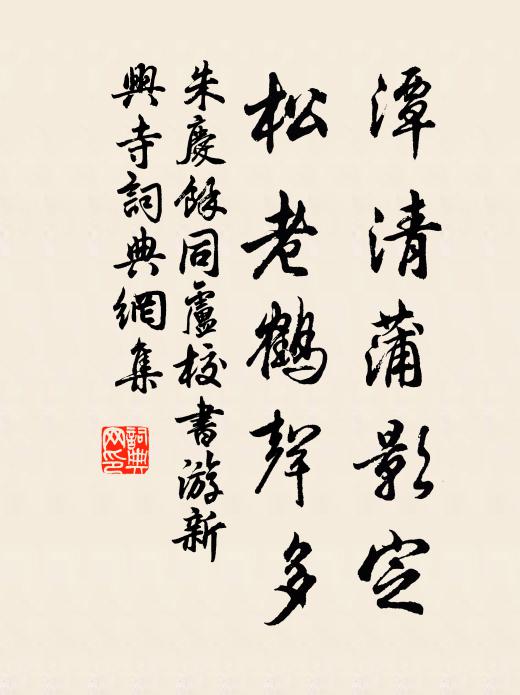 潭清蒲影定
松老鶴聲多
朱慶餘同盧校書游新
興寺詞典網集
詞典網印